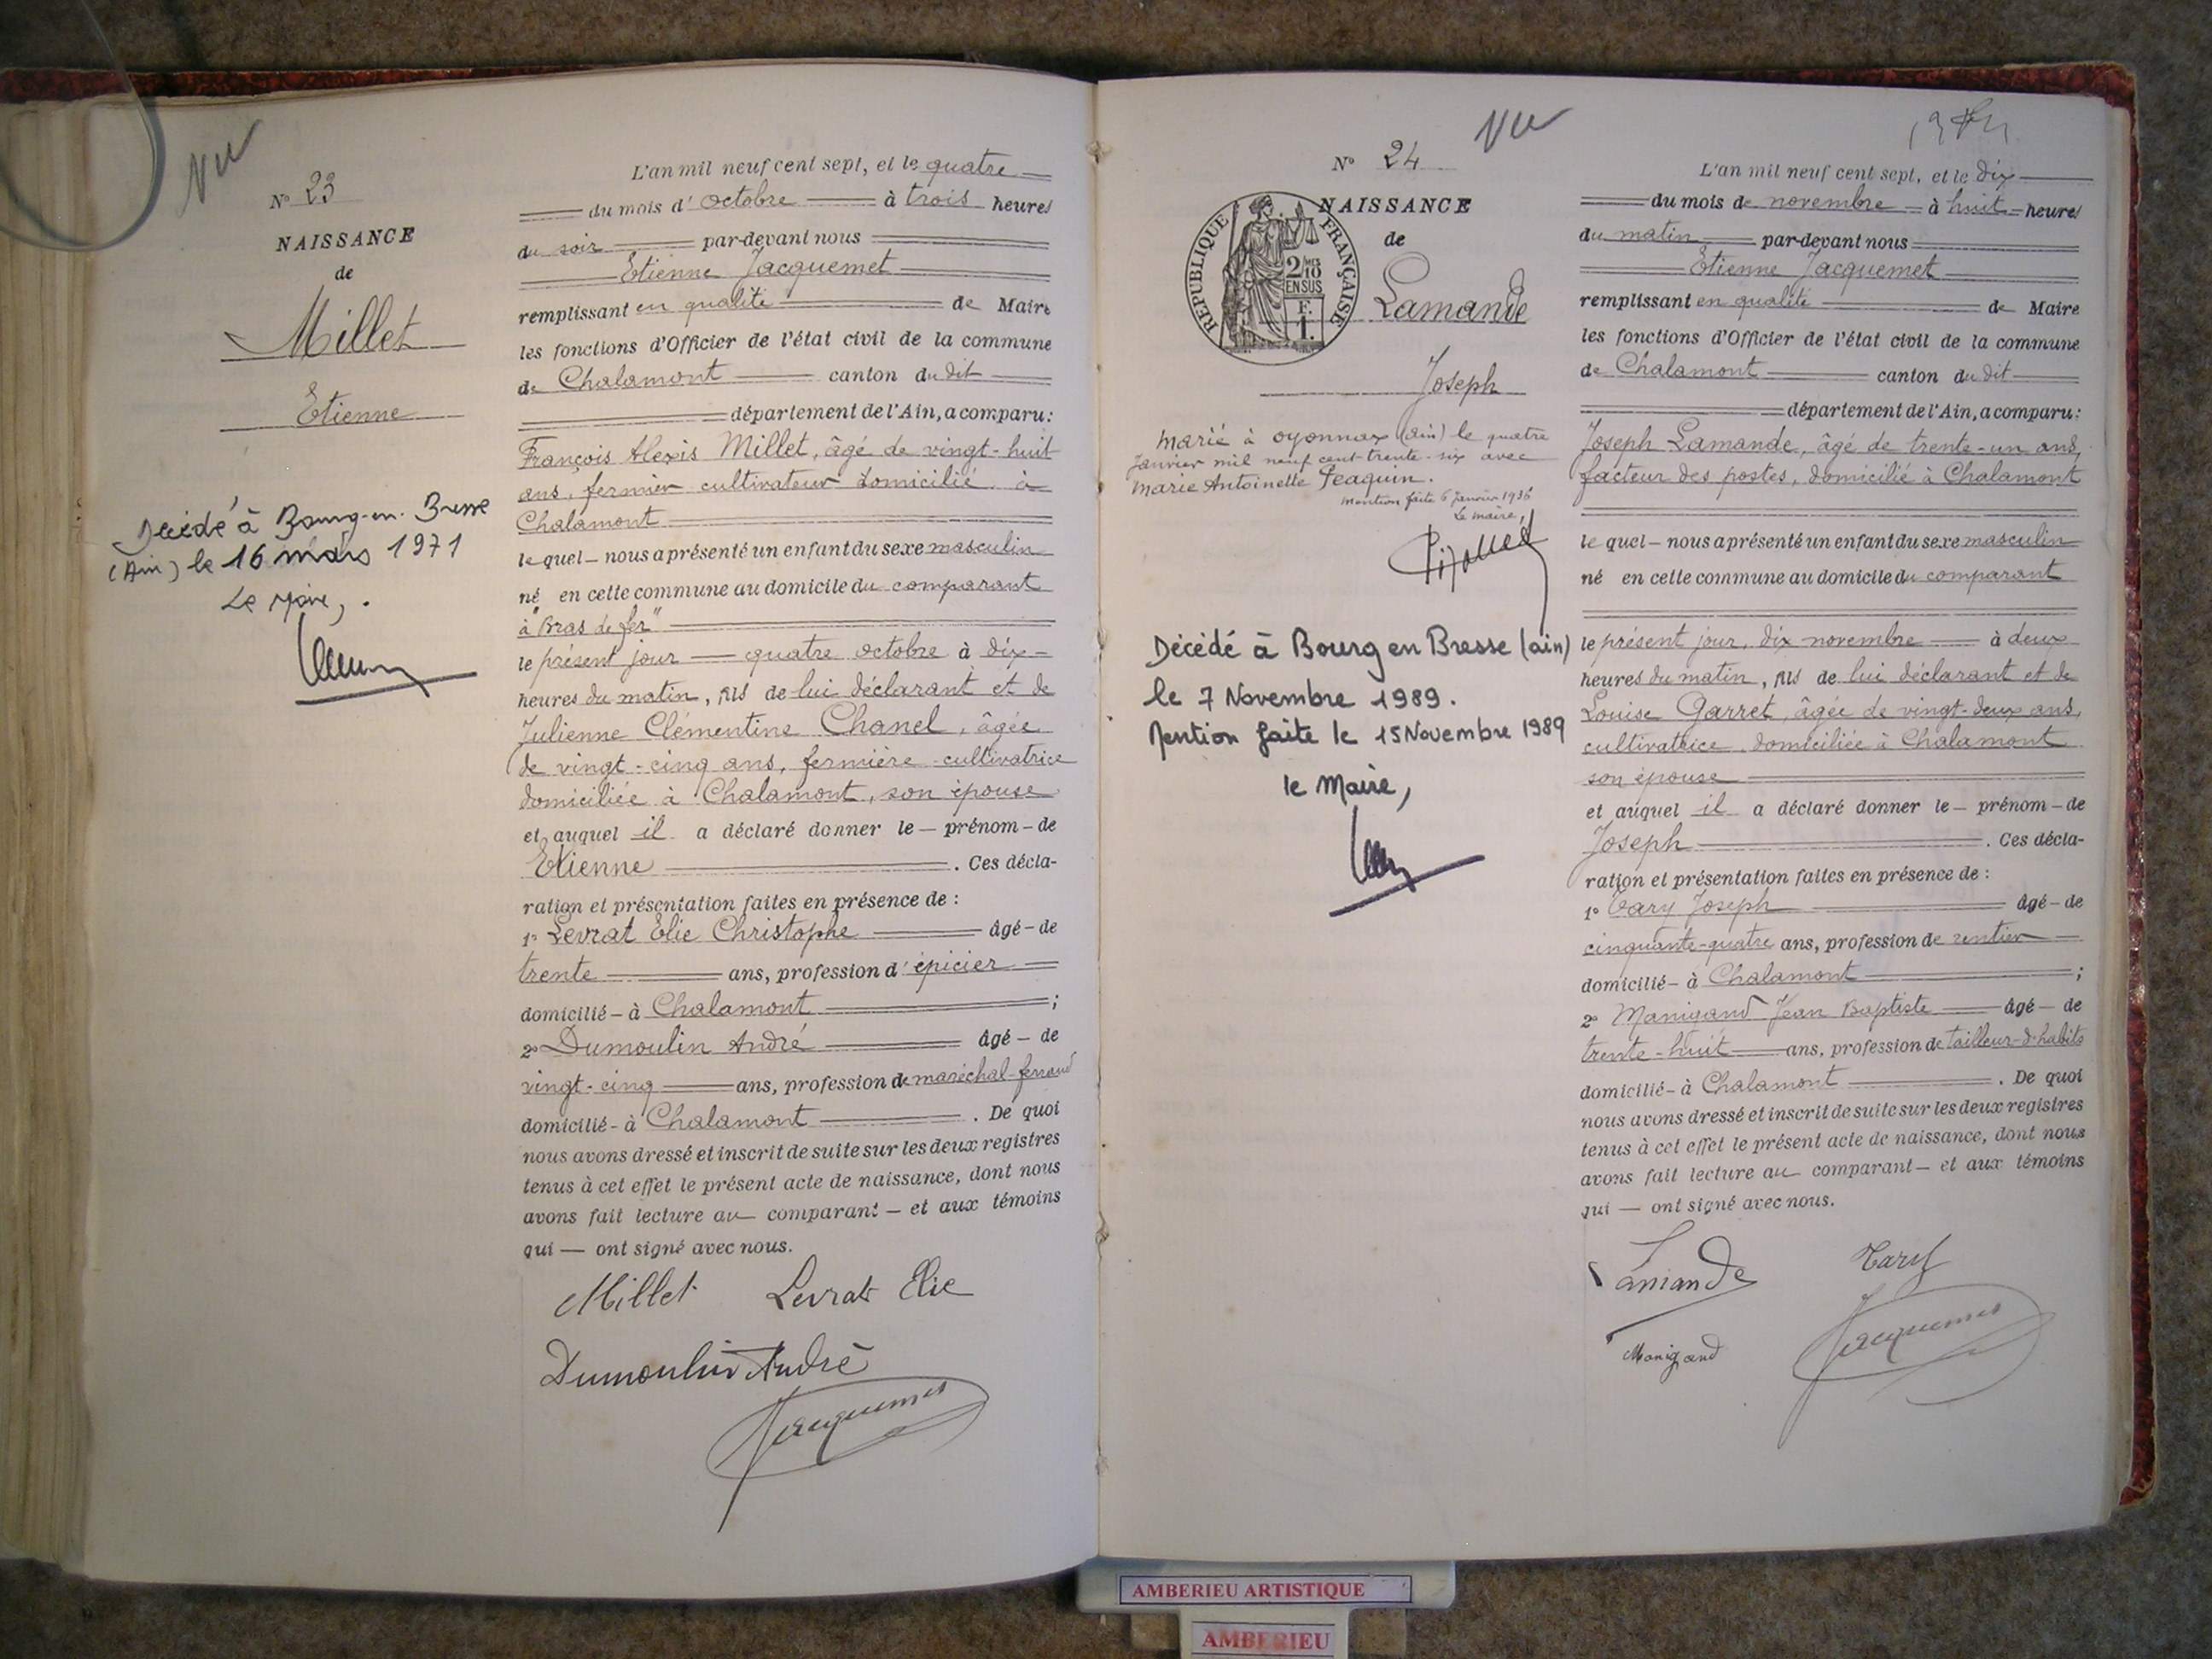 Vu
N° 23
NAISSANCE
de
Millet
Etienne
Décédé à Bourg-en-Bresse
(Ain) le 16 mars 1971
Le Maire,
L'an mil neuf cent sept, et le quatre
du mois d'octobre à trois heures
du soir par-devant nous
Etienne Jacquemet
remplissant en qualité de Maire
les fonctions d'Officier de l'état civil de la commune
de Chalamont canton du dit
département de l'Ain, a comparu:
François Alexis Millet, âgé de vingt-huit
ans, fermier cultivateur domicilié à
Chalamont
le quel nous a présenté un enfant du sexe masculin
né en cette commune au domicile du comparant
à "Bras de fer"
le présent jour quatre octobre à dix
heures du matin, fils de lui déclarant et de
Julienne Clémentine Chanel, âgée
de vingt-cinq ans, fermière-cultivatrice
domiciliée à Chalamont, son épouse
et auquel il a déclaré donner le prénom de
Etienne. Ces décla-
ration et présentation faites en présence de :
1° Levrat Elie Christophe âgé de
trente ans, profession d'épicier
domicilié à Chalamont ;
2° Dumoulin André âgé de
vingt-cinq ans, profession de maréchal-ferrand
domicilié à Chalamont. De quoi
nous avons dressé et inscrit de suite sur les deux registres
tenus à cet effet le présent acte de naissance, dont nous
avons fait lecture au comparant et aux témoins
qui ont signé avec nous.
Millet Levrat Elie
Dumoulin André
Jacquemet
Vu
N° 24
NAISSANCE
de
Lamande
Joseph
RÉPUBLIQUE FRANÇAISE
2/10 MES
EN SUS
F.
1.
marié à oyonnax (ain) le quatre
Janvier mil neuf cent trente-six avec
Marie Antoinette Feaquin.
mention faite 6 janvier 1936
Le maire,
Décédé à Bourg en Bresse (ain)
le 7 Novembre 1989.
Mention faite le 15 Novembre 1989
le Maire,
L'an mil neuf cent sept, et le dix
du mois de novembre à huit heures
du matin par-devant nous
Etienne Jacquemet
remplissant en qualité de Maire
les fonctions d'Officier de l'état civil de la commune
de Chalamont canton du dit
département de l'Ain, a comparu:
Joseph Lamande, âgé de trente-un ans,
facteur des postes, domicilié à Chalamont
le quel nous a présenté un enfant du sexe masculin
né en cette commune au domicile du comparant
le présent jour, dix novembre à deux
heures du matin, fils de lui déclarant et de
Louise Garret, âgée de vingt-deux ans,
cultivatrice domiciliée à Chalamont
son épouse
et auquel il a déclaré donner le prénom de
Joseph. Ces décla-
ration et présentation faites en présence de :
1° Tary Joseph âgé de
cinquante-quatre ans, profession de rentier
domicilié à Chalamont ;
2° Manigand Jean Baptiste âgé de
trente-huit ans, profession de tailleur-d'habits
domicilié à Chalamont. De quoi
nous avons dressé et inscrit de suite sur les deux registres
tenus à cet effet le présent acte de naissance, dont nous
avons fait lecture au comparant et aux témoins
qui ont signé avec nous.
Lamande Tary
Manigand Jacquemet
AMBERIEU ARTISTIQUE
AMBERIEU